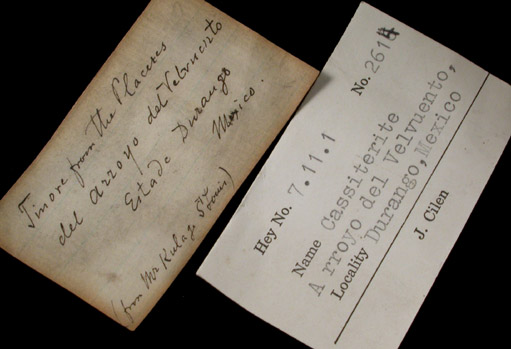 Tinore from the Placeres
del arroyo del Velvuento
Estado Durango
Mexico.
(from Mr Kulag
Hey No. 7.11.1 No. 2614
Name Cassiterite
Arroyo del Velvuento,
Locality Durango, Mexico
J. Cilen